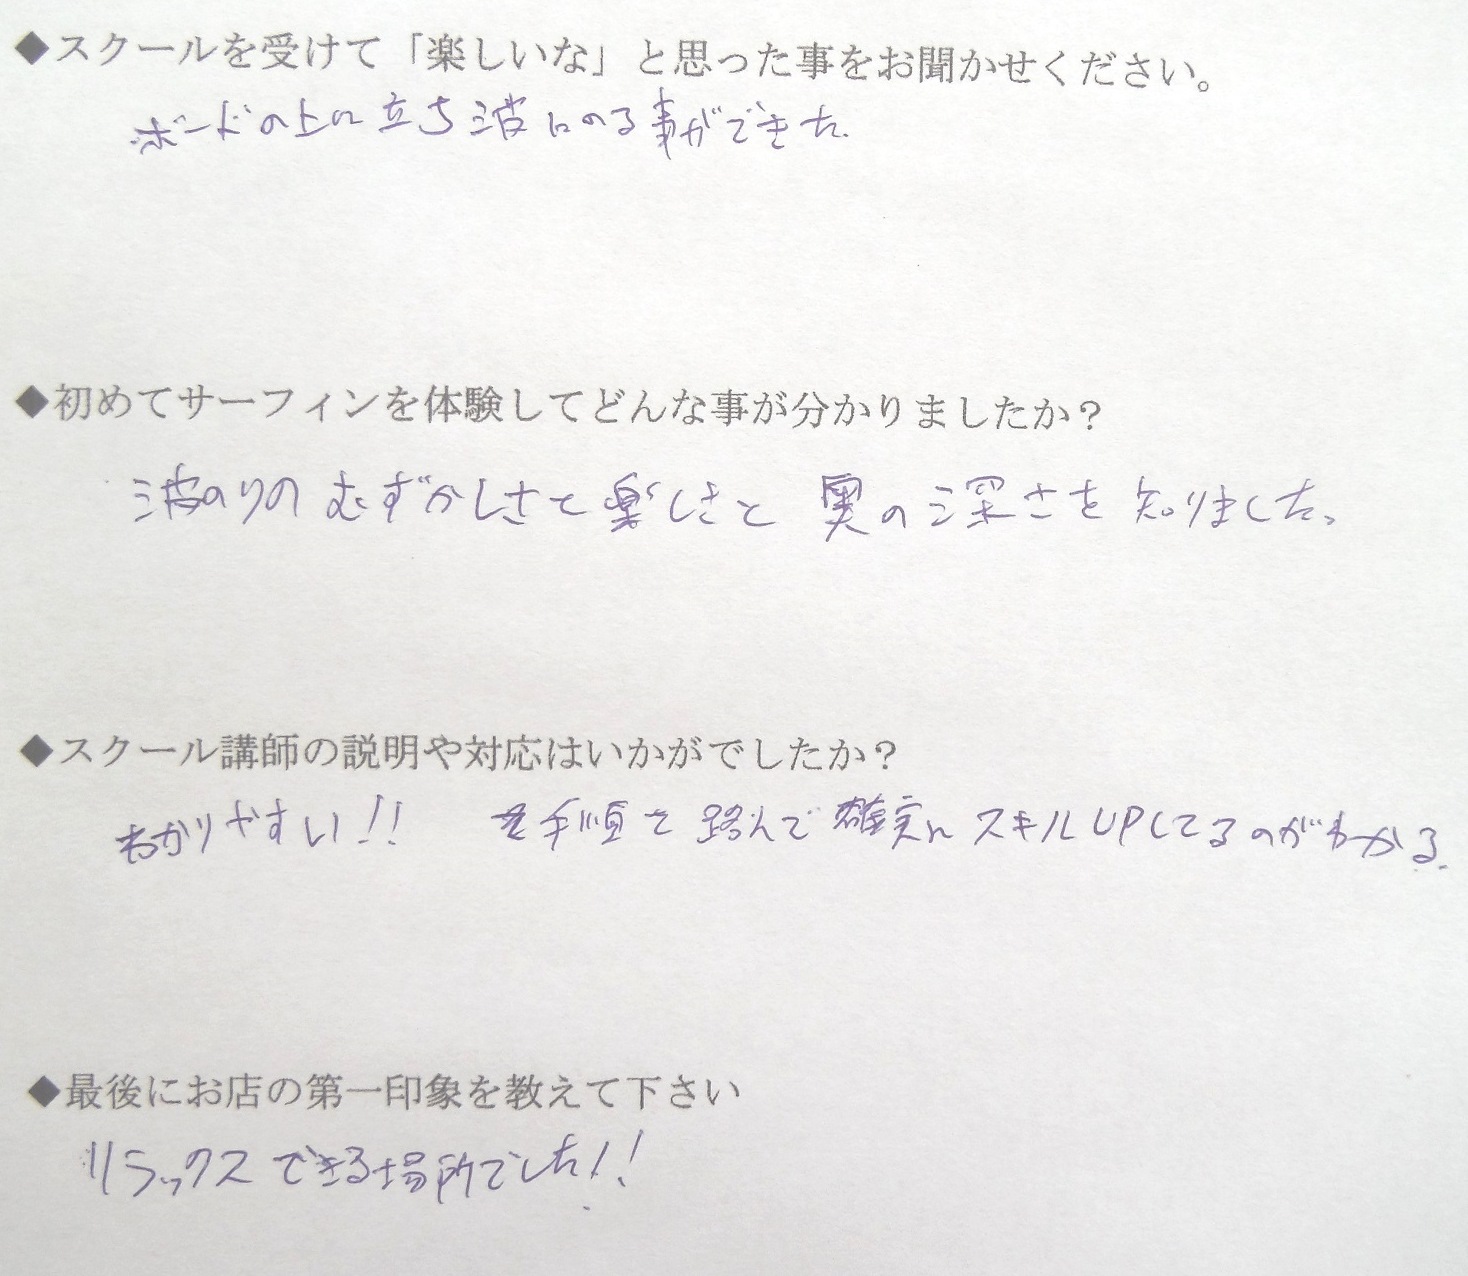 ◆スクールを受けて「楽しいな」と思った事をお聞かせください。
ボードの上に立ち波にのる事ができた.
◆初めてサーフィンを体験してどんな事が分かりましたか?
波のりの むずかしさと楽しさと 奥の深さを 知りました。
◆スクール講師の説明や対応はいかがでしたか?
わかりやすい!! 手順を 踏んで 確実に スキルUPしてるのがわかる.
◆最後にお店の第一印象を教えて下さい
リラックスできる場所でした!!